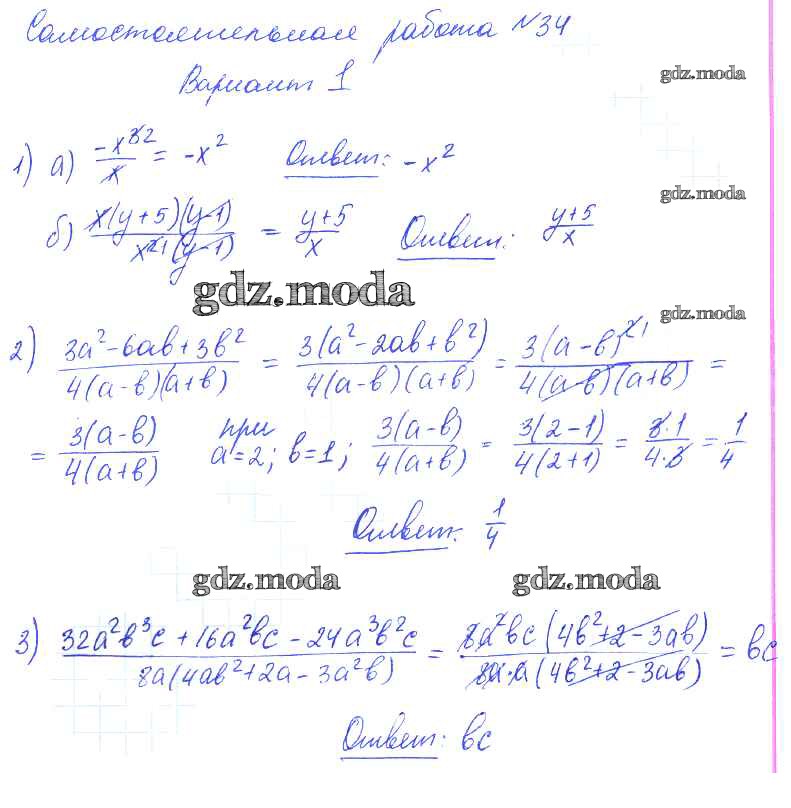 Самостоятельная работа №34
gdz.moda
Вариант 1
1) а) -x³²/x = -x² Ответ: -x²
gdz.moda
б) x(y+5)(y-1)/x²¹(y-1) = y+5/x Ответ: y+5/x
gdz.moda
gdz.moda
2) 3a²-6ab+3b²/4(a-b)(a+b) = 3(a²-2ab+b²)/4(a-b)(a+b) = 3(a-b)²¹/4(a-b)(a+b) =
= 3(a-b)/4(a+b) при a=2; b=1; 3(a-b)/4(a+b) = 3(2-1)/4(2+1) = 3·1/4·3 = 1/4
Ответ: 1/4
gdz.moda gdz.moda
3) 32a²b³c+16a²bc-24a³b²c/8a(4ab²+2a-3a²b) = 8a²bc(4b²+2-3ab)/8a·a(4b²+2-3ab) = bc
Ответ: bc